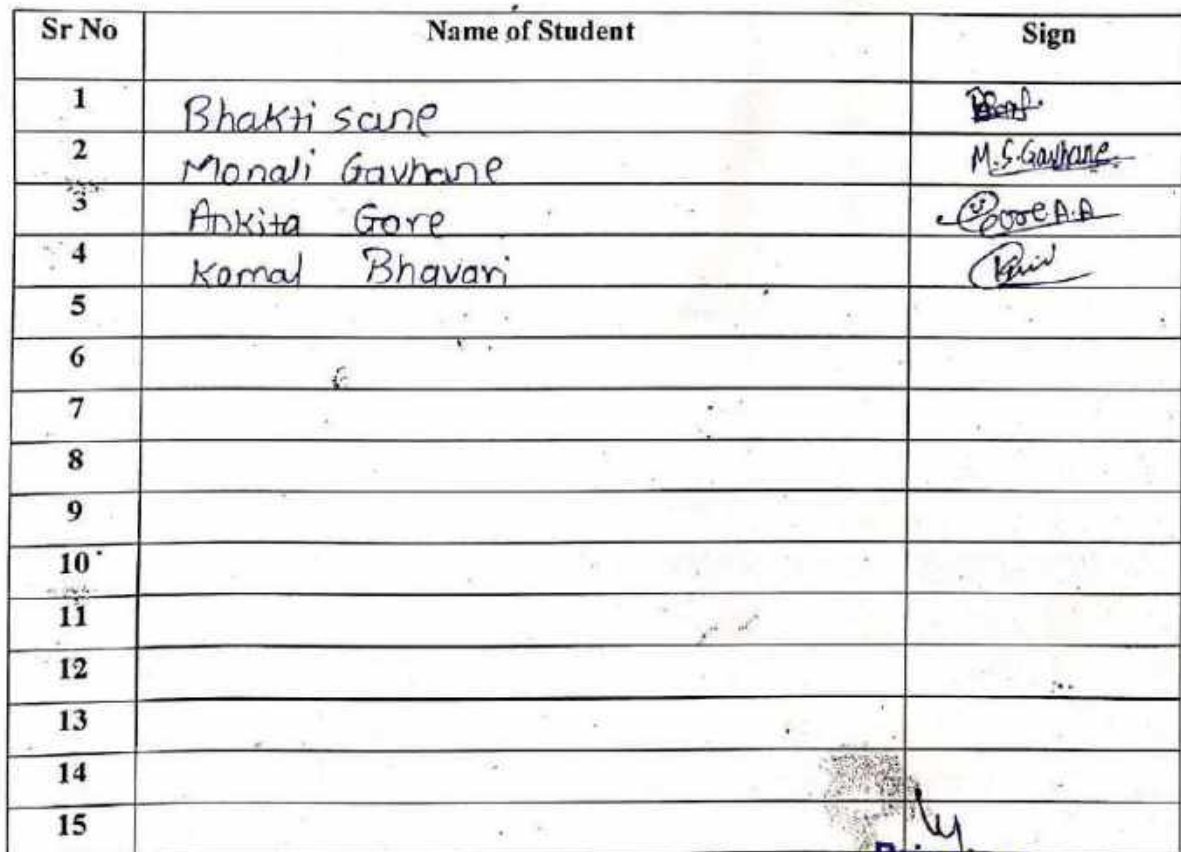 Sr No Name of Student Sign
1 Bhakti sane
2 Monali Gavhane M.S.Gavhane
3 Ankita Gore Gore A.A
4 Komal Bhavari
5
6
7
8
9
10
11
12
13
14
15